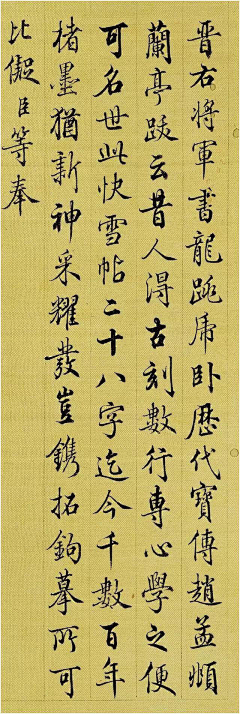 晉右將軍書龍跳虎卧歷代寶傳趙孟頫
蘭亭跋云昔人得古刻數行專心學之便
可名世此快雪帖二十八字迄今千數百年
楮墨猶新神采耀發豈鐫拓鉤摹所可
比儗臣等奉